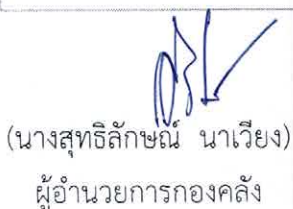 (นางสุทธิลักษณ์ นาเวียง)
ผู้อำนวยการกองคลัง